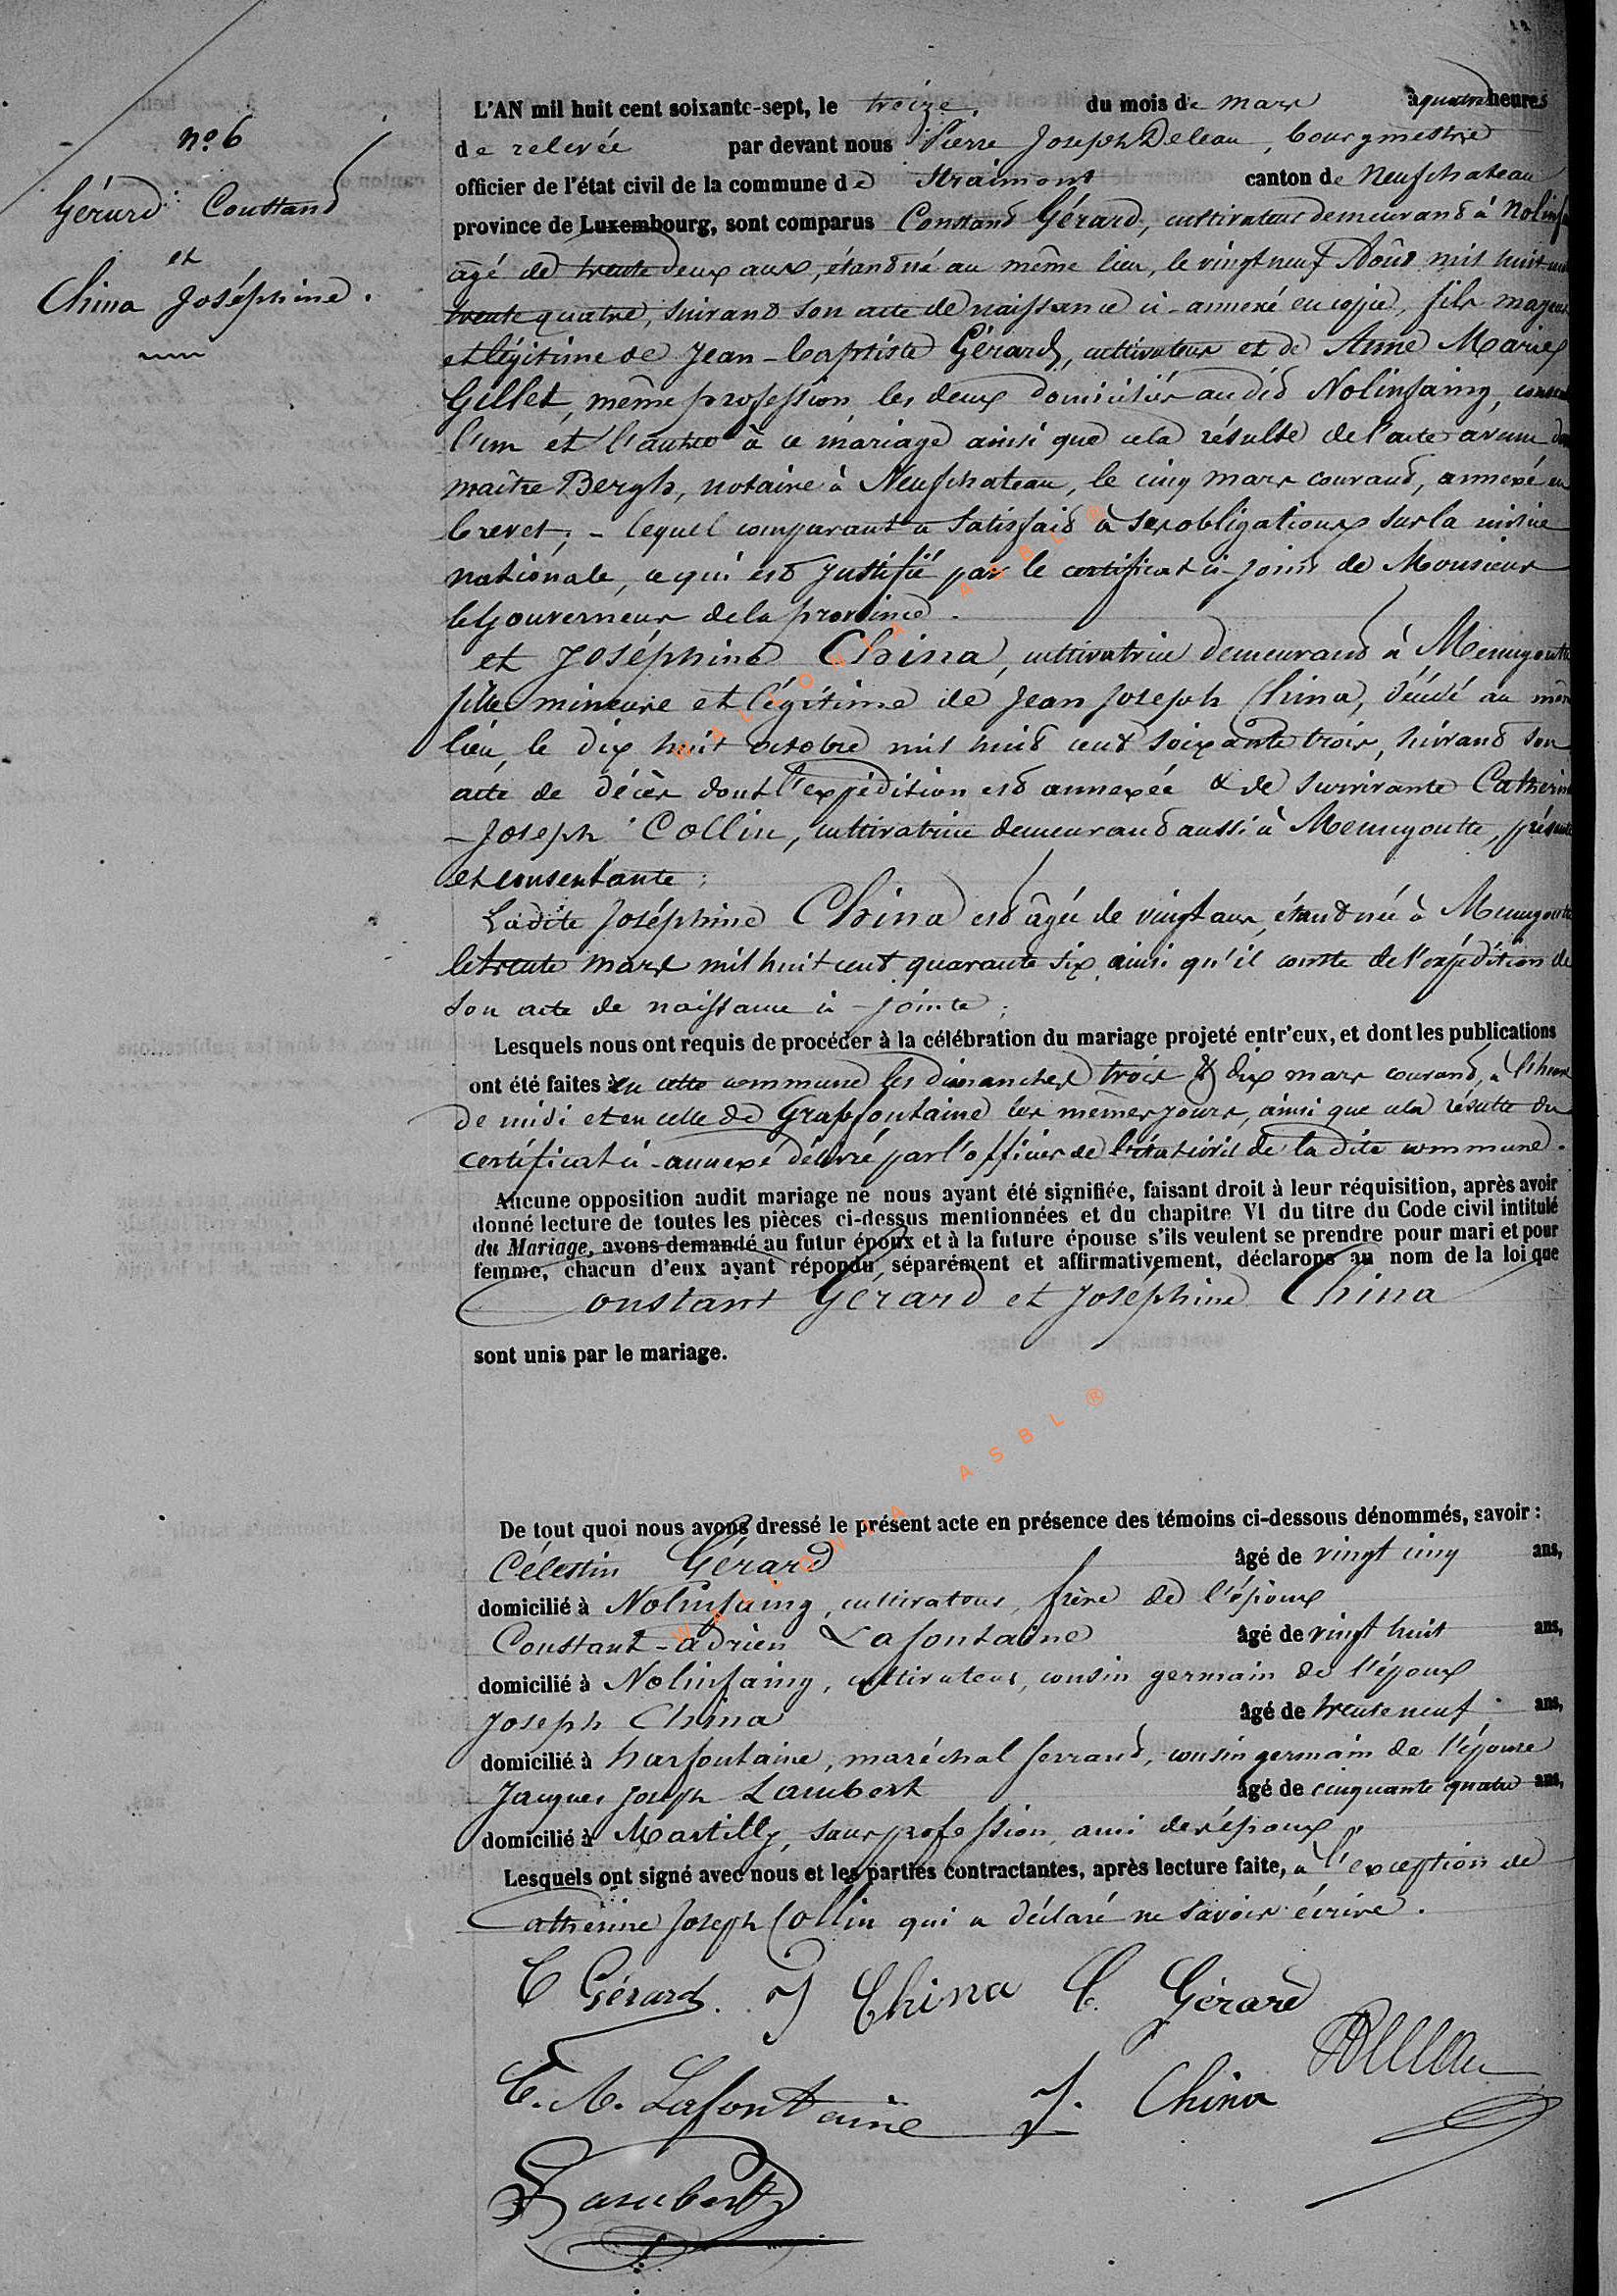 L'AN mil huit cent soixante-sept, le treize, du mois de mars à quatre heures
n.º 6
de relevée par devant nous Pierre Joseph Deleau, bourgmestre
officier de l'état civil de la commune de Straimont canton de Neufchateau
Gérard Constant
province de Luxembourg, sont comparus Constant Gérard, cultivateur demeurant à
et
âgé de trente deux ans, étant né au même lieu, le vingt neuf Août mil huit cent
China Joséphine.
trente quatre, suivant son acte de naissance ci-annexé en copie, fils majeur
et légitime de Jean-baptiste Gérard, cultivateur et de Anne Marie
Gillet, même profession, les deux domiciliés audit Nolinfaing, 
l'un et l'autre à ce mariage ainsi que cela résulte de l'acte avenu
maître Bergh, notaire à Neufchateau, le cinq mars courant, annexé en
brevet; - lequel comparant a satisfait à ses obligations sur la milice
nationale, ce qui est justifié par le certificat ci-joint de Monsieur
le Gouverneur de la province.
et Joséphine China, cultivatrice demeurant à Menugoutte
fille mineure et légitime de Jean Joseph China, décédé au même
lieu, le dix huit octobre mil huit cent soixante trois, suivant son
acte de décès dont l'expédition est annexée & de survivante Catherine
-Joseph Collin, cultivatrice demeurant aussi à Menugoutte, présente
et consentante;
Ladite Joséphine China est âgée de vingt ans, étant née à Menugoutte
le trente mars mil huit cent quarante six, ainsi qu'il conste de l'expédition de
son acte de naissance ci-jointe;
Lesquels nous ont requis de procéder à la célébration du mariage projeté entr'eux, et dont les publications
ont été faites en cette commune les dimanches trois & dix mars courant, à l'heure
de midi et en celle de Grapfontaine les mêmes jours, ainsi que cela résulte du
certificat ci-annexé délivré par l'officier de l'état civil de la dite commune.
Aucune opposition audit mariage ne nous ayant été signifiée, faisant droit à leur réquisition, après avoir
donné lecture de toutes les pièces ci-dessus mentionnées et du chapitre VI du titre du Code civil intitulé
du Mariage, avons demandé au futur époux et à la future épouse s'ils veulent se prendre pour mari et pour
femme, chacun d'eux ayant répondu séparément et affirmativement, déclarons au nom de la loi que
Constant Gérard et Joséphine China
sont unis par le mariage.
De tout quoi nous avons dressé le présent acte en présence des témoins ci-dessous dénommés, savoir:
Célestin Gérard âgé de vingt cinq ans,
domicilié à Nolinfaing, cultivateur, frère de l'époux
Constant-adrien Lafontaine âgé de vingt huit ans,
domicilié à Nolinfaing, cultivateur, cousin germain de l'époux
Joseph China âgé de trente neuf ans,
domicilié à harfontaine, maréchal ferrant, cousin germain de l'épouse
Jacques Joseph Lambert âgé de cinquante quatre ans,
domicilié à Martilly, sans profession, ami des époux.
Lesquels ont signé avec nous et les parties contractantes, après lecture faite, à l'exception de
Catherine Joseph Collin qui a déclaré ne savoir écrire.
C Gérard. J China C. Gérard
Deleau
C. A. Lafontaine J. China
Lambert
WALLONIA ASBL ®
WALLONIA ASBL ®